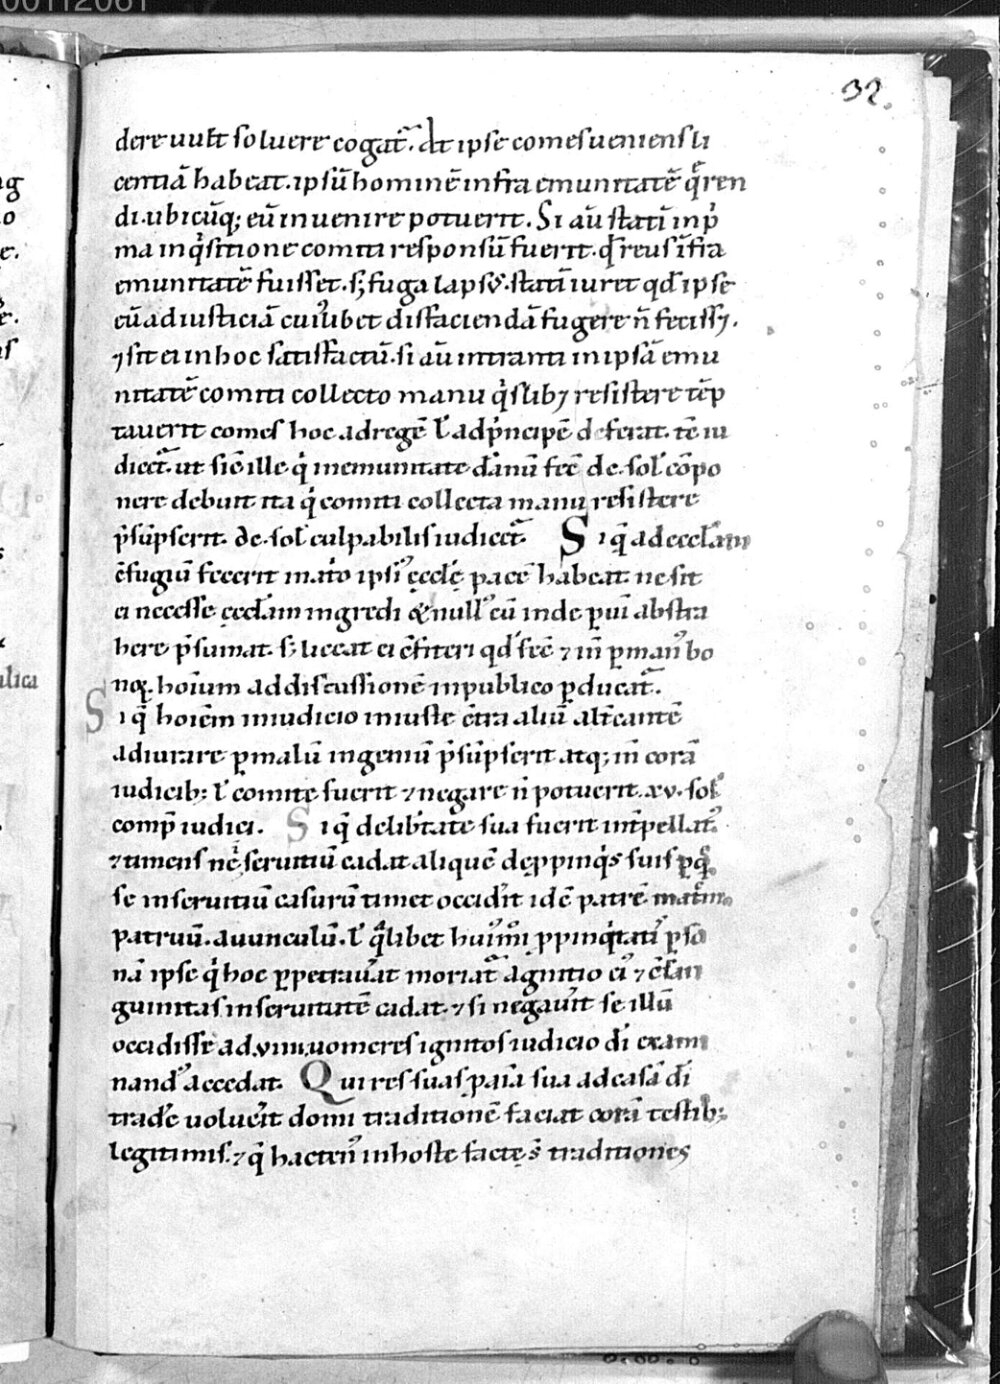 00112061
32.
dere uult soluere cogat᷑. At ipse comes ueniens li
centiā habeat. ipsū hominē infra emunitatē q̄ren
di. ubicūq; eū inuenire potuerit. Si aū statī in p̄
ma inq̇sitione comiti responsū fuerit. qđ reus īfra
emunitatē fuisset. s; fuga lapsꝰ. statī iuret qđ ipse
eū ad iusticiā cuiꝰlibet disfaciendā fugere n̄ fecissꝫ.
⁊ sit ei in hoc satisfactū. si aū intranti in ipsā emu
nitatē comiti collecto manu q̇slibꝫ resistere tēp
tauerit comes hoc ad regē ł ad ṗncipē deferat. tē iu
dicet᷑. ut sic̄ ille q̇ in emunitate dānū fec̄ .dc. sol̄ cōpo
nere debuit ita q̇ comiti collecta manu resistere
p̄sūpserit. dc. sol̄ culpabilis iudicet᷑. Si q̄ ad ęccłam
c̄fugiū fecerit in at̓o ipsiꝰ ęccłę pacē habeat. ne sit
ei necesse ęccłam ingredi & nullꝰ eū inde p̱ uī abstra
here p̄sumat. s; liceat ei c̄fiteri qđ fec̄ ⁊ in̄ p̱ manꝰ bo
noꝝ. hoīum ad discussionē in publico p̱ducat᷑.
Si q̄ hoīem in iudicio iniuste c̄tra aliū alt̄cantē
adiurare p̱ malū ingeniū p̄sūpserit. atq; in̄ corā
iudicib; ł comite fuerit ⁊ negare n̄ potuerit. xv. sol̄
comp̄ iudici. Si q̄ de lib̄tate sua fuerit int̄pellatꝰ.
⁊ timens nē seruitiū cadat aliquē de ꝓpinq̇s suis p̱ q̄
se in seruitiū casurū timet occidit id ē patrē matrē.
patruū. auunculū. ł q̄libet huiꝰm̄i ꝓpinq̇tatiꝰ p̱so
nā ipse q̇ hoc p̱petrau̓at moriat᷑ agnitio eiꝰ ⁊ c̄san
guinitas in seruitutē cadat. ⁊ si negau̓it se illū
occidisse ad .viiii. uomeres ignitos iudicio dī exami
nandꝰ accedat. Qui res suas p̱ aīa sua ad casā dī
trad̓e uoluer̄it domi traditionē faciat corā testib;
legitimis. ⁊ q̄ hactenꝰ in hoste factę s̄ traditiones